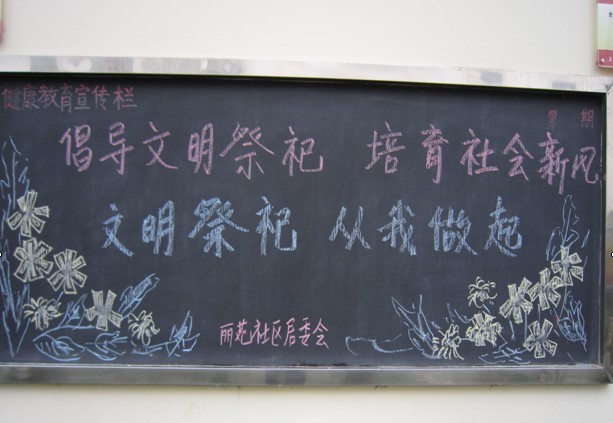 健康教育宣传栏
期
倡导文明祭祀 培育社会新风
文明祭祀 从我做起
丽苑社区居委会